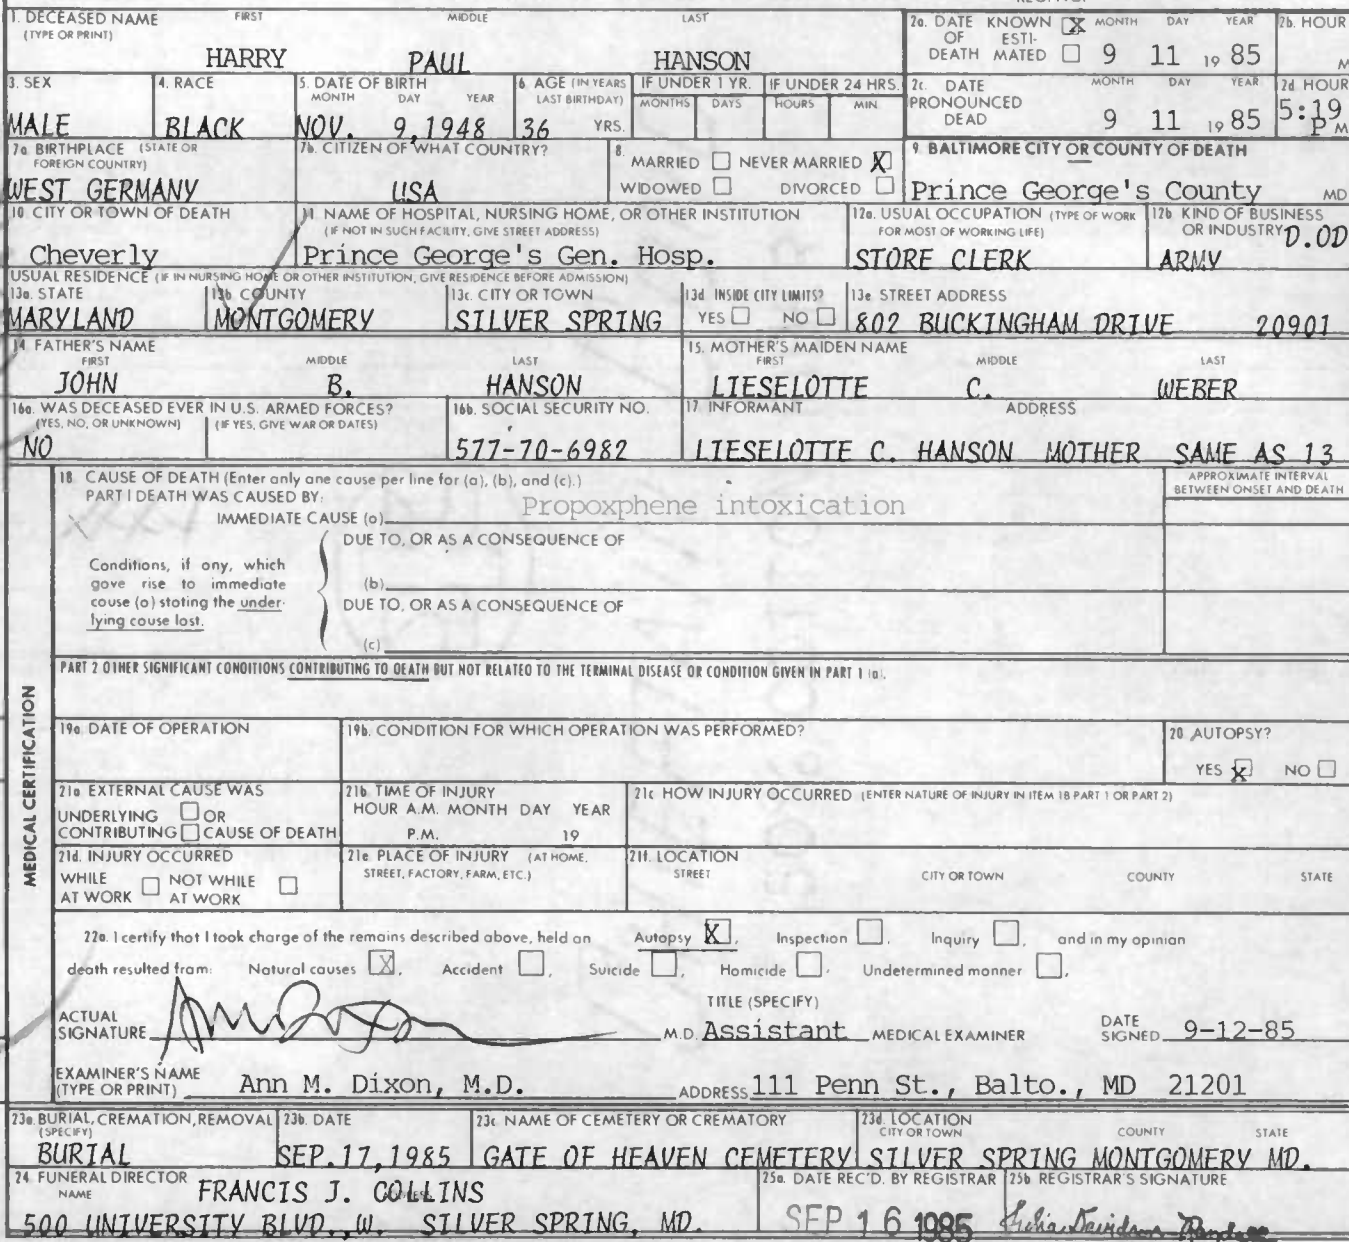 1. DECEASED NAME FIRST MIDDLE LAST
(TYPE OR PRINT)
HARRY PAUL HANSON
2a. DATE KNOWN X MONTH DAY YEAR
OF ESTI-
DEATH MATED 9 11 1985
2b. HOUR
M
3. SEX
MALE
4. RACE
BLACK
5. DATE OF BIRTH
MONTH DAY YEAR
NOV. 9, 1948
6. AGE (IN YEARS
LAST BIRTHDAY)
36 YRS.
IF UNDER 1 YR.
MONTHS DAYS
IF UNDER 24 HRS.
HOURS MIN.
2c. DATE MONTH DAY YEAR
PRONOUNCED
DEAD 9 11 1985
2d HOUR
5:19
P M
7a. BIRTHPLACE (STATE OR
FOREIGN COUNTRY)
WEST GERMANY
7b. CITIZEN OF WHAT COUNTRY?
USA
8.
MARRIED NEVER MARRIED X
WIDOWED DIVORCED
9. BALTIMORE CITY OR COUNTY OF DEATH
Prince George's County MD
10. CITY OR TOWN OF DEATH
Cheverly
11. NAME OF HOSPITAL, NURSING HOME, OR OTHER INSTITUTION
(IF NOT IN SUCH FACILITY, GIVE STREET ADDRESS)
Prince George's Gen. Hosp.
12a. USUAL OCCUPATION (TYPE OF WORK
FOR MOST OF WORKING LIFE)
STORE CLERK
12b. KIND OF BUSINESS
OR INDUSTRY D.OD
ARMY
USUAL RESIDENCE (IF IN NURSING HOME OR OTHER INSTITUTION, GIVE RESIDENCE BEFORE ADMISSION)
13a. STATE
MARYLAND
13b. COUNTY
MONTGOMERY
13c. CITY OR TOWN
SILVER SPRING
13d. INSIDE CITY LIMITS?
YES NO
13e. STREET ADDRESS
802 BUCKINGHAM DRIVE 20901
14. FATHER'S NAME
FIRST MIDDLE LAST
JOHN B. HANSON
15. MOTHER'S MAIDEN NAME
FIRST MIDDLE LAST
LIESELOTTE C. WEBER
16a. WAS DECEASED EVER IN U.S. ARMED FORCES?
(YES, NO, OR UNKNOWN) (IF YES, GIVE WAR OR DATES)
NO
16b. SOCIAL SECURITY NO.
577-70-6982
17. INFORMANT ADDRESS
LIESELOTTE C. HANSON MOTHER SAME AS 13
MEDICAL CERTIFICATION
18. CAUSE OF DEATH (Enter only one cause per line for (a), (b), and (c).)
PART I DEATH WAS CAUSED BY:
IMMEDIATE CAUSE (a) Propoxphene intoxication
APPROXIMATE INTERVAL
BETWEEN ONSET AND DEATH
DUE TO, OR AS A CONSEQUENCE OF
Conditions, if any, which
gave rise to immediate
cause (a) stating the under-
lying cause last.
(b)
DUE TO, OR AS A CONSEQUENCE OF
(c)
PART 2 OTHER SIGNIFICANT CONDITIONS CONTRIBUTING TO DEATH BUT NOT RELATED TO THE TERMINAL DISEASE OR CONDITION GIVEN IN PART 1 (a).
19a. DATE OF OPERATION
19b. CONDITION FOR WHICH OPERATION WAS PERFORMED?
20. AUTOPSY?
YES X NO
21a. EXTERNAL CAUSE WAS
UNDERLYING OR
CONTRIBUTING CAUSE OF DEATH
21b. TIME OF INJURY
HOUR A.M. MONTH DAY YEAR
P.M. 19
21c. HOW INJURY OCCURRED (ENTER NATURE OF INJURY IN ITEM 18 PART 1 OR PART 2)
21d. INJURY OCCURRED
WHILE NOT WHILE
AT WORK AT WORK
21e. PLACE OF INJURY (AT HOME,
STREET, FACTORY, FARM, ETC.)
21f. LOCATION
STREET CITY OR TOWN COUNTY STATE
22a. I certify that I took charge of the remains described above, held an Autopsy X, Inspection , Inquiry , and in my opinion
death resulted from: Natural causes X, Accident , Suicide , Homicide , Undetermined manner .
TITLE (SPECIFY)
ACTUAL
SIGNATURE M.D. Assistant MEDICAL EXAMINER
DATE
SIGNED 9-12-85
EXAMINER'S NAME
(TYPE OR PRINT) Ann M. Dixon, M.D. ADDRESS 111 Penn St., Balto., MD 21201
23a. BURIAL, CREMATION, REMOVAL
(SPECIFY)
BURIAL
23b. DATE
SEP. 17, 1985
23c. NAME OF CEMETERY OR CREMATORY
GATE OF HEAVEN CEMETERY
23d. LOCATION
CITY OR TOWN COUNTY STATE
SILVER SPRING MONTGOMERY MD.
24. FUNERAL DIRECTOR
NAME FRANCIS J. COLLINS
500 UNIVERSITY BLVD., W. SILVER SPRING, MD.
25a. DATE REC'D. BY REGISTRAR
SEP 16 1985
25b. REGISTRAR'S SIGNATURE
Julia Davidson-Randall